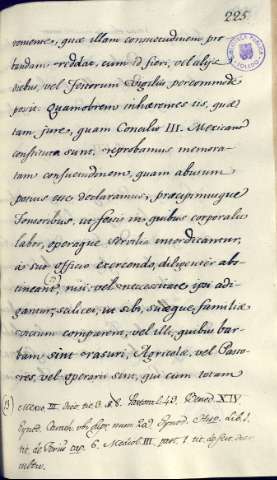 225.
veniente, quæ illam consuetudinem pro
bandam reddat, cum id fieri, vel alijs
diebus, vel Festorum Vigilijs percommodè
possit. Quamobrem inhærentes iis, quæ
tam Jure, quam Concilio III. Mexicano
constituta sunt, reprobamus memora-
tam consuetudinem, quam abusum
potius esse declaramus, præcipimusque
Tonsoribus, ut festis in quibus corporalis
labor, operaque servilia interdicantur,
à suo Officio exercendo, diligenter abs-
tineant, nisi vel necessitate ipsi adi-
gantur, scilicet, ut sibi, suæque familiæ
victum comparent, vel illi, quibus bar-
bam sint rasuri, Agricolæ, vel Pasto-
res, vel operarii sint, qui cum totam
Mexic. III. tit. 3. §. 8. 
Synod. ubi supr. num. Synod. Lib. 1.
tit. de Feriis cap. 6. Mediol. III. part. 1. tit. de fest. die-